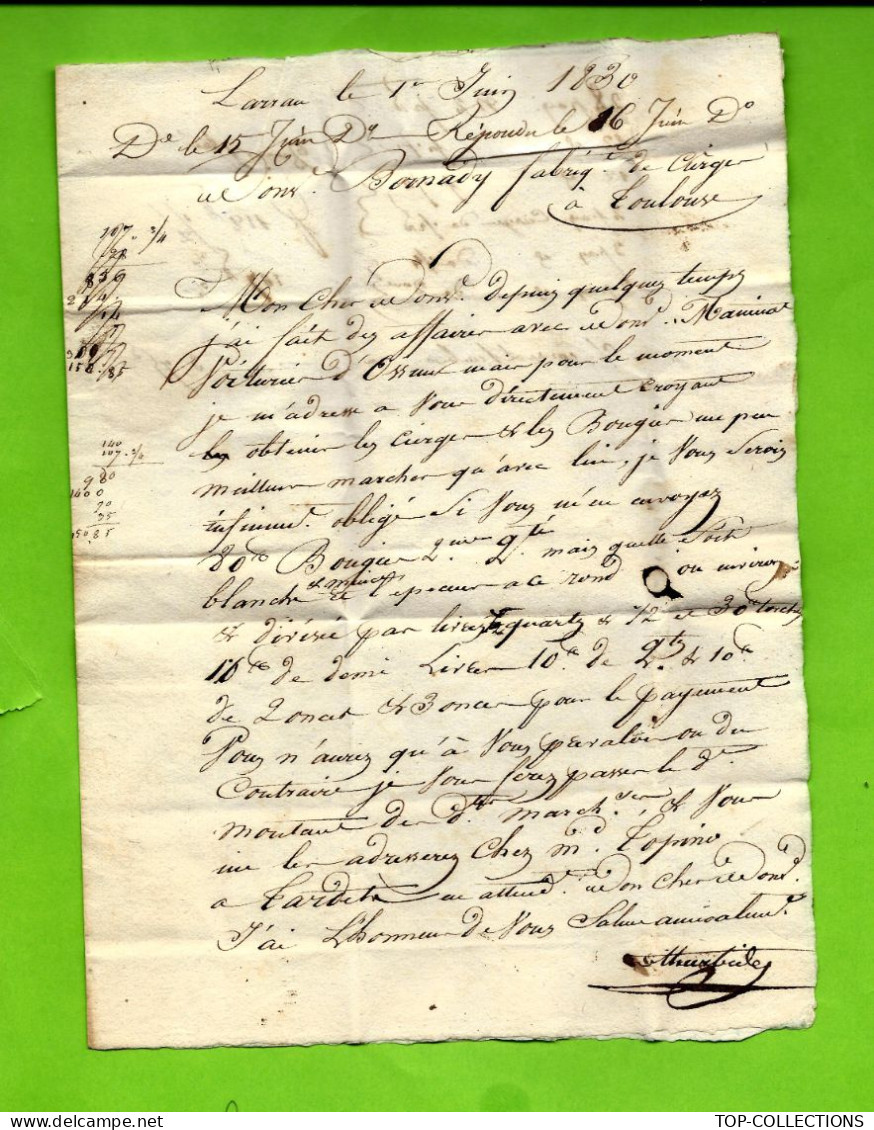 Larrau le 1er Juin 1830
De le 15 Juin Do Répondu le 16 Juin Do
Monsr. Bornady fabriqt. de Cièrges
à Toulouse
107 3/4
140
107 3/4
980
1400
90
35
150.85
Mon Cher Monsr. depuis quelques temps
j'ai fait des affaires avec Monsr.
Voiturier D'Ossun mais pour le moment
je m'adresse a Vous directement croyant
obtenir les cierges & les Bougies un peu
meilleur marcher qu'avec lui, je Vous Serois
infinimt. obligé Si Vous m'en envoyez
80 Bougies 2me qté mais quelle Soit
blanche & mince
& l'epesseur a ce rond ou environ
& divisé par livres quarts & 1/2 et 30
10 de demi Livres 10 de qts & 10
de 2 onces & 3 onces pour le payement
Vous n'aurez qu'à Vous prevaloir ou du
Contraire je Vous ferez passer le dt
montant des dtes marchses, & Vous
me les adresserez Chez md. Topino
a Tardets en attendt. Mon Cher Monsr.
J'ai L'honneur de Vous Saluer amicalemt.
TOP-COLLECTIONS